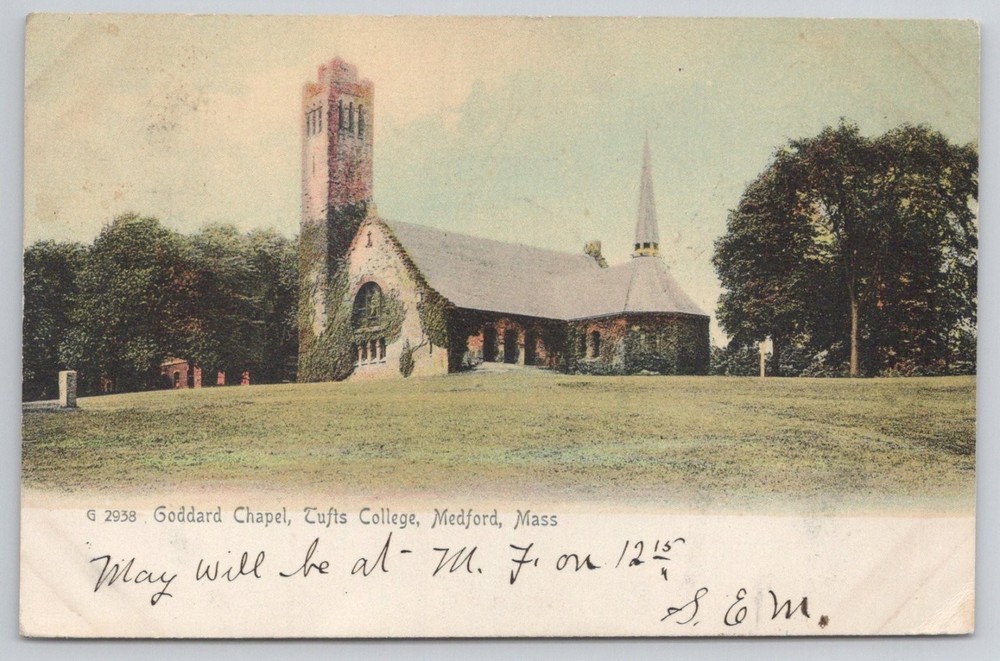 G 2938 Goddard Chapel, Tufts College, Medford, Mass
May will be at M. F. on 12 15
S. E. M.